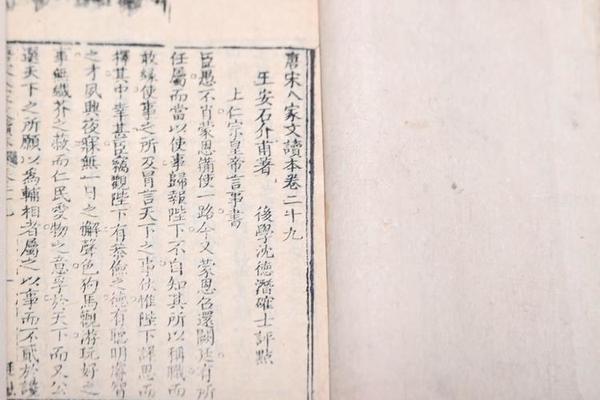 唐宋八家文讀本卷二十九
王安石介甫著　後學沈德潛確士評點
上仁宗皇帝言事書
臣愚不肖蒙恩備使一路今又蒙恩召還闕廷有所
任屬而當以使事歸報陛下不自知其所以稱職而
敢緣使事之所及冒言天下之事伏惟陛下詳思而
擇其中幸甚臣竊觀陛下有恭儉之德有聰明睿智
之才夙興夜寐無一日之懈聲色狗馬觀游玩好之
事無纖芥之蔽而仁民愛物之意孚於天下而又公
選天下之所願以爲輔相者屬之以事而不貳於讒